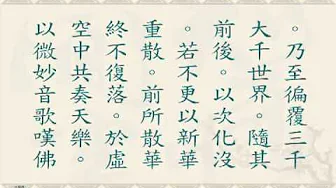 。乃至徧覆三千
大千世界。隨其
前後。以次化沒
。若不更以新華
重散。前所散華
終不復落。於虛
空中共奏天樂。
以微妙音歌嘆佛